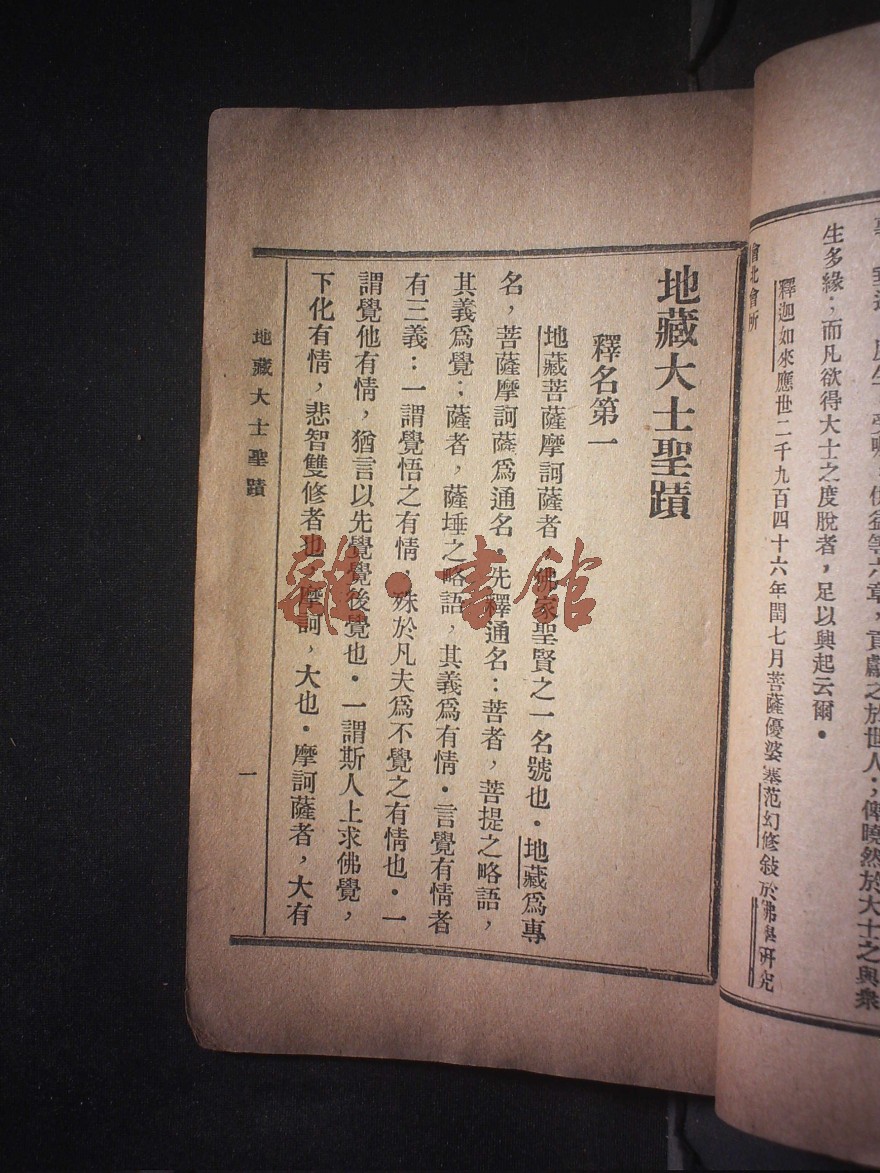 生多緣；而凡欲得大士之度脫者，足以興起云爾．
釋迦如來應世二千九百四十六年閏七月菩薩優婆塞范幻修敍於佛學研究
會北會所
地藏大士聖蹟
釋名第一
地藏菩薩摩訶薩者，佛家聖賢之一名號也．地藏爲專
名，菩薩摩訶薩爲通名．先釋通名：菩者，菩提之略語，
其義爲覺；薩者，薩埵之略語，其義爲有情．言覺有情者
有三義：一謂覺悟之有情，殊於凡夫爲不覺之有情也．一
謂覺他有情，猶言以先覺覺後覺也．一謂斯人上求佛覺，
下化有情，悲智雙修者也．摩訶，大也．摩訶薩者，大有
地藏大士聖蹟
一
雜·書館